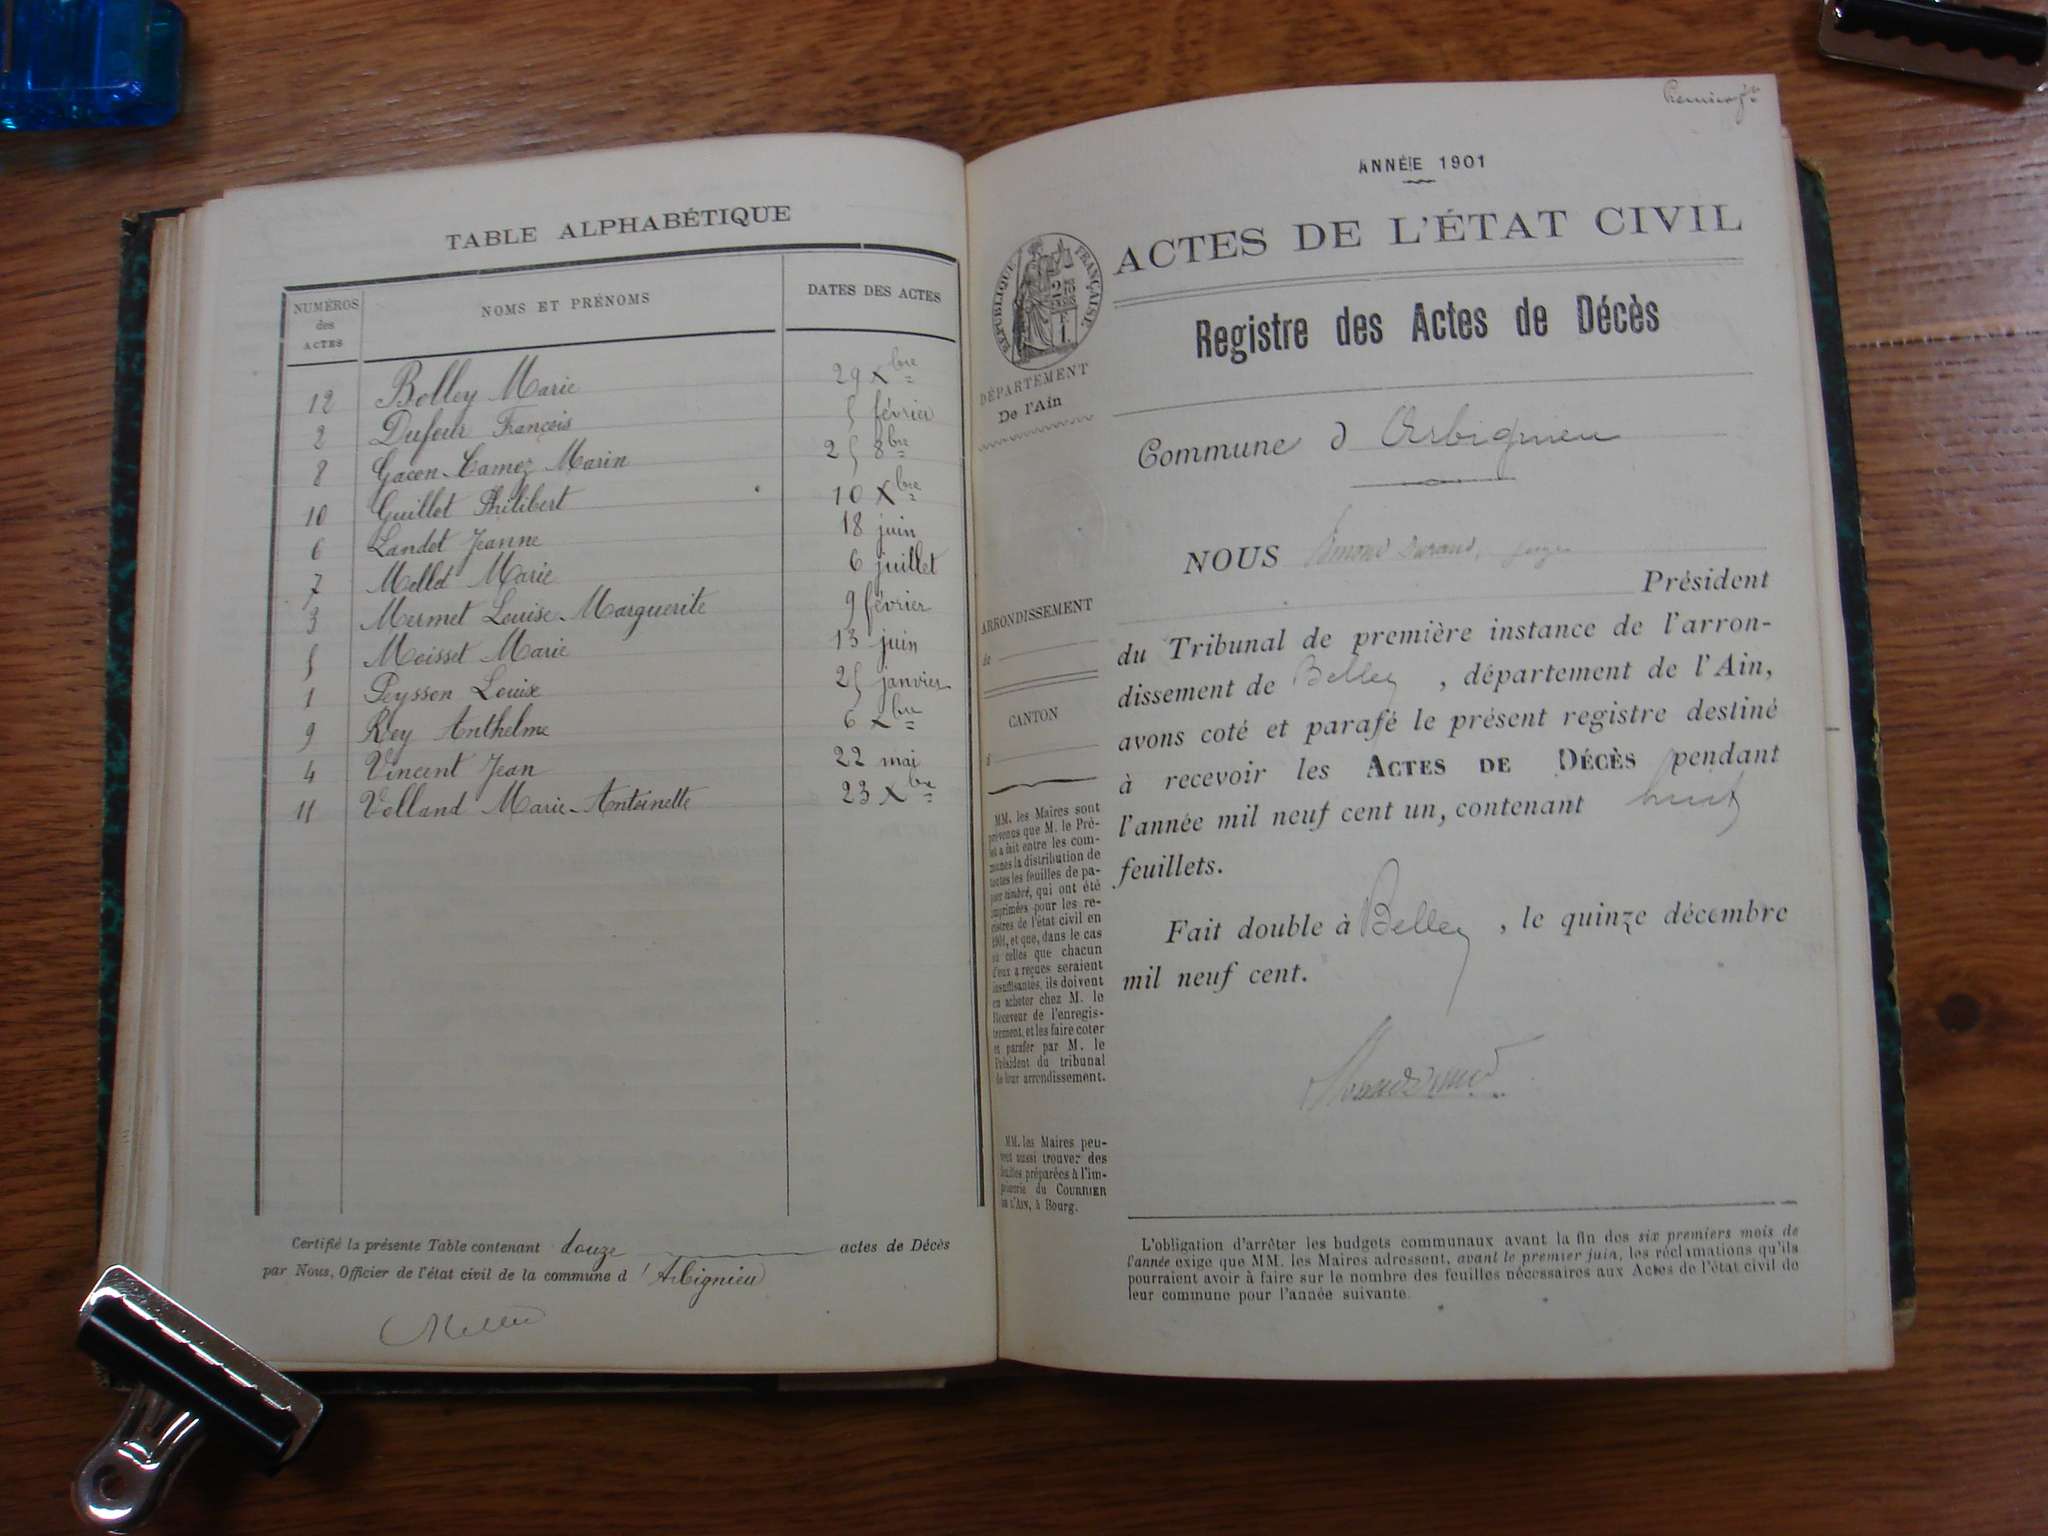 TABLE ALPHABÉTIQUE
NUMÉROS des ACTES
NOMS ET PRÉNOMS
DATES DES ACTES
12 Bolley Marie 29 Xbre
2 Dufour François 5 février
8 Gacon-Camoz Marin 25 8bre
10 Guillot Philibert 10 Xbre
6 Landet Jeanne 18 juin
7 Mollet Marie 6 juillet
3 Mermet Louise-Marguerite 9 février
5 Moisset Marie 13 juin
1 Peysson Louise 25 janvier
9 Rey Anthelme 6 Xbre
4 Vincent Jean 22 mai
11 Volland Marie-Antoinette 23 Xbre
Certifié la présente Table contenant douze actes de Décès
par Nous, Officier de l'état civil de la commune d'Arbignieu
ANNÉE 1901
ACTES DE L'ÉTAT CIVIL
RÉPUBLIQUE FRANÇAISE
Registre des Actes de Décès
DÉPARTEMENT
De l'Ain
Commune d'Arbignieu
NOUS
Président
ARRONDISSEMENT
de
CANTON
du Tribunal de première instance de l'arron-
dissement de Belley, département de l'Ain,
avons coté et parafé le présent registre destiné
à recevoir les ACTES DE DÉCÈS pendant
l'année mil neuf cent un, contenant huit
feuillets.
Fait double à Belley, le quinze décembre
mil neuf cent.
MM. les Maires sont
prévenus que M. le Pré-
fet a fait entre les com-
munes la distribution de
toutes les feuilles de pa-
pier timbré, qui ont été
imprimées pour les re-
gistres de l'état civil en
1901, et que, dans le cas
où celles que chacun
d'eux a reçues seraient
insuffisantes, ils doivent
en acheter chez M. le
Receveur de l'enregis-
trement, et les faire coter
et parafer par M. le
Président du tribunal
de leur arrondissement.
MM. les Maires peu-
vent aussi trouver des
feuilles préparées à l'im-
primerie du COURRIER
DE L'AIN, à Bourg.
L'obligation d'arrêter les budgets communaux avant la fin des six premiers mois de
l'année exige que MM. les Maires adressent, avant le premier juin, les réclamations qu'ils
pourraient avoir à faire sur le nombre des feuilles nécessaires aux Actes de l'état civil de
leur commune pour l'année suivante.